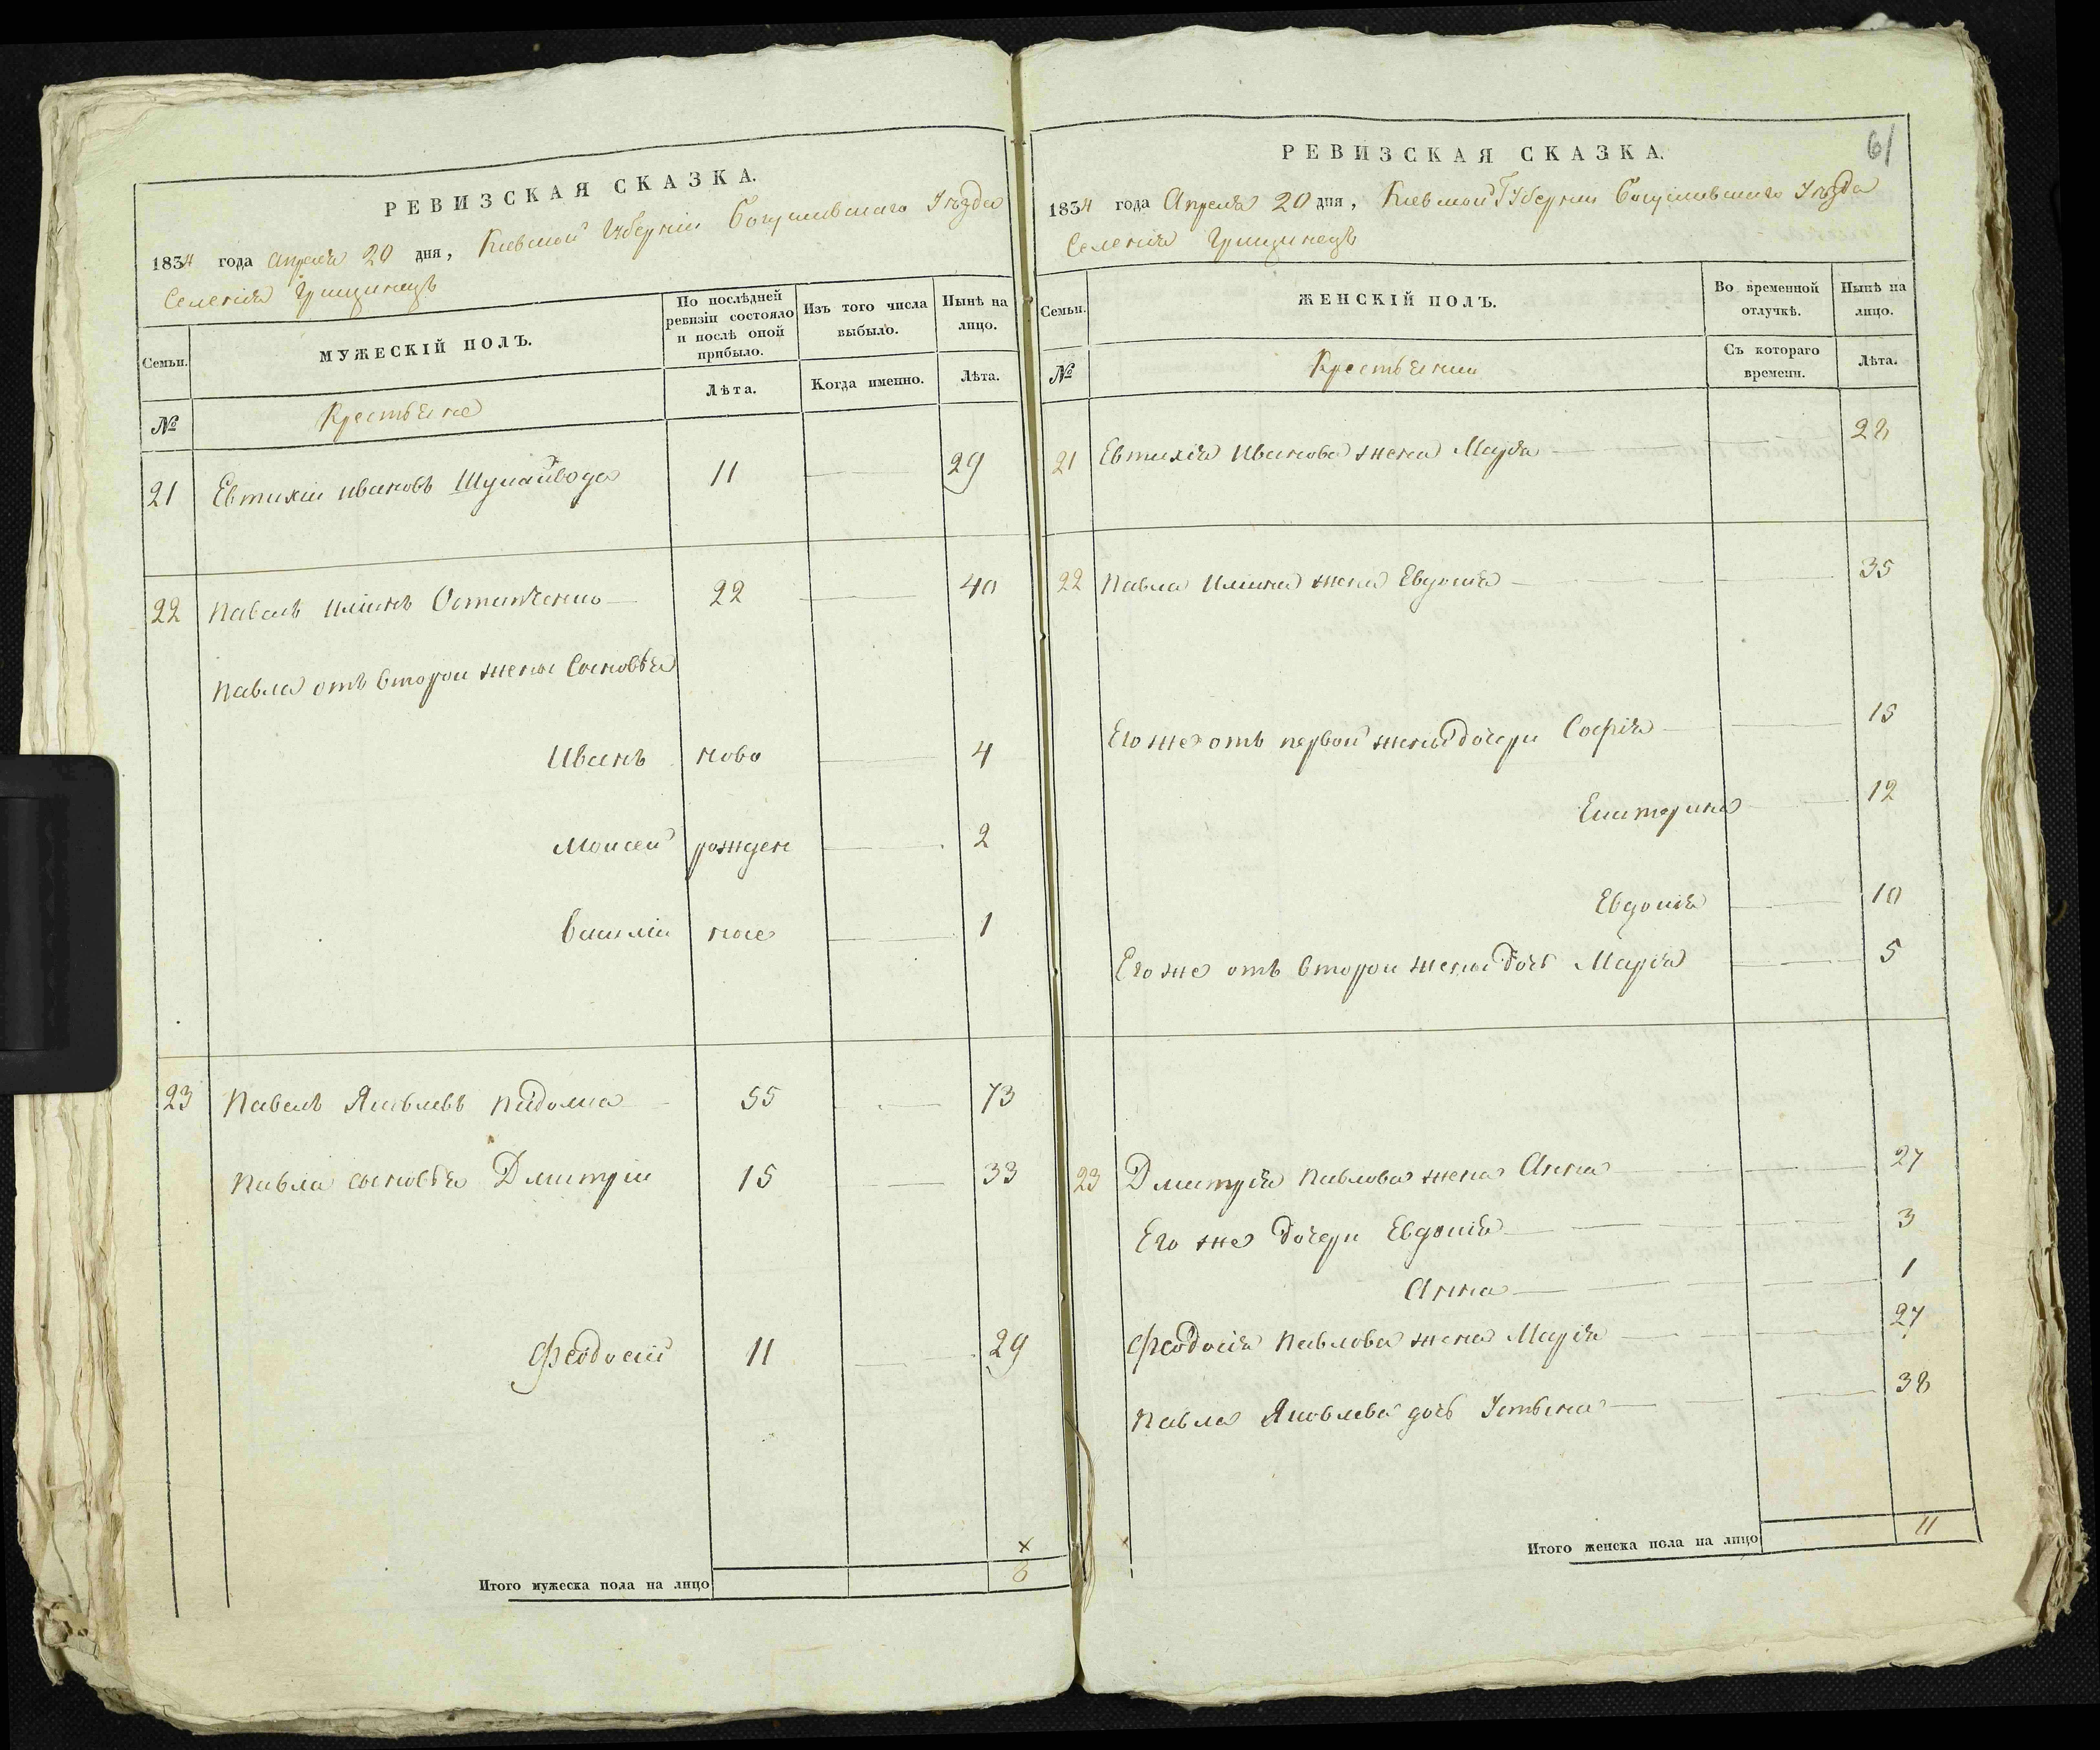 РЕВИЗСКАЯ СКАЗКА.
1834 года Апреля 20 дня, Киевской Губернии Богуславского Уѣзда
Селенія Грищинецъ
Семьи.
МУЖЕСКІЙ ПОЛЪ.
По послѣдней ревизіи состояло и послѣ оной прибыло.
Изъ того числа выбыло.
Нынѣ на лицо.
№
Крестьяне
Лѣта.
Когда именно.
Лѣта.
21 Евтихій Ивановъ 11 29
22 Павелъ Илiинъ Остапченко 22 40
Павла отъ второй жены сыновья
Иванъ ново 4
Моисей рожден 2
Василій ные 1
23 Павелъ Яковлевъ 55 73
Павла сыновья Дмитрій 15 33
Феодосій 11 29
Итого мужеска пола на лицо
х
8
РЕВИЗСКАЯ СКАЗКА.
61
1834 года Апреля 20 дня, Киевской Губернии Богуславского Уѣзда
Селенія Грищинецъ
Семьи.
ЖЕНСКІЙ ПОЛЪ.
Во временной отлучкѣ.
Нынѣ на лицо.
№
Крестьянки
Съ котораго времени.
Лѣта.
21 Евтихія Иванова жена Марія 28
22 Павла Илiина жена Евдокія 35
Его же отъ первой жены дочери Софія 15
Екатерина 12
Евдокія 10
Его же отъ второй жены дочь Марія 5
23 Дмитрія Павлова жена Анна 27
Его же дочери Евдокія 3
Анна 1
Феодосія Павлова жена Марія 27
Павла Яковлева дочь Устына 38
Итого женска пола на лицо 11